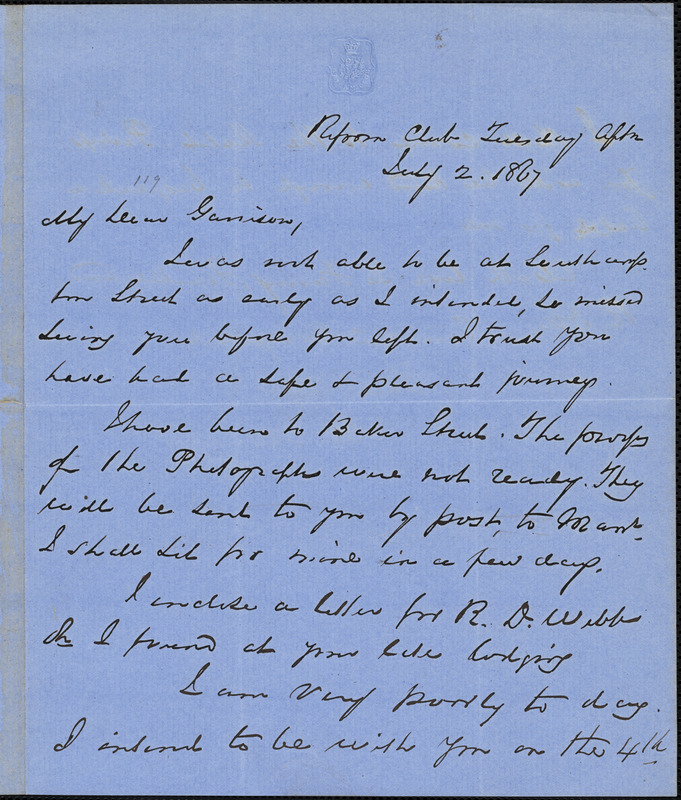 Reform Club Tuesday Aftn
July 2. 1867
119
My Dear Garrison,
I was not able to be at Southamp-
ton Street as early as I intended, so missed
seeing you before you left. I trust you
have had a safe & pleasant journey.
I have been to Baker Street. The proofs
of the Photographs were not ready. They
will be sent to you by post, to Manr.
I shall sit for mine in a few days.
I enclose a letter for R. D. Webb
wh I found at your late lodging
I am very poorly to day.
I intend to be with you on the 4th